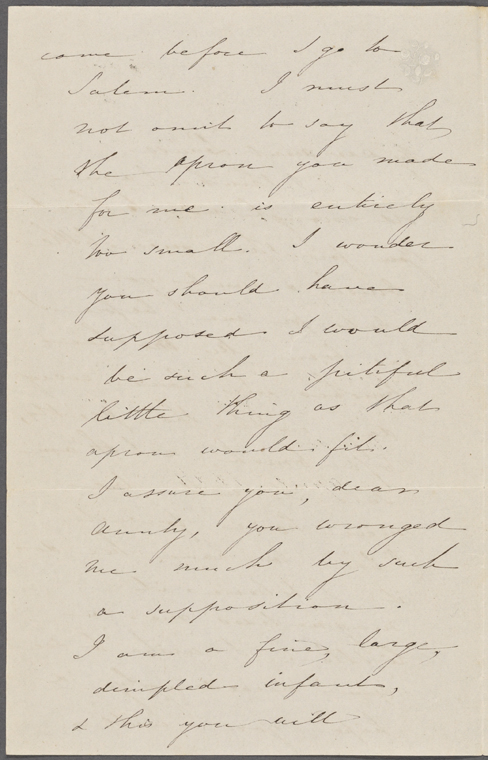 come before I go to
Salem. I must
not omit to say that
the apron you made
for me is entirely
too small. I wonder
you should have
supposed I would
be such a pitiful
little thing as that
apron would fit.
I assure you, dear
aunty, you wronged
me much by such
a supposition.
I am a fine, large,
dimpled infant,
& this you will